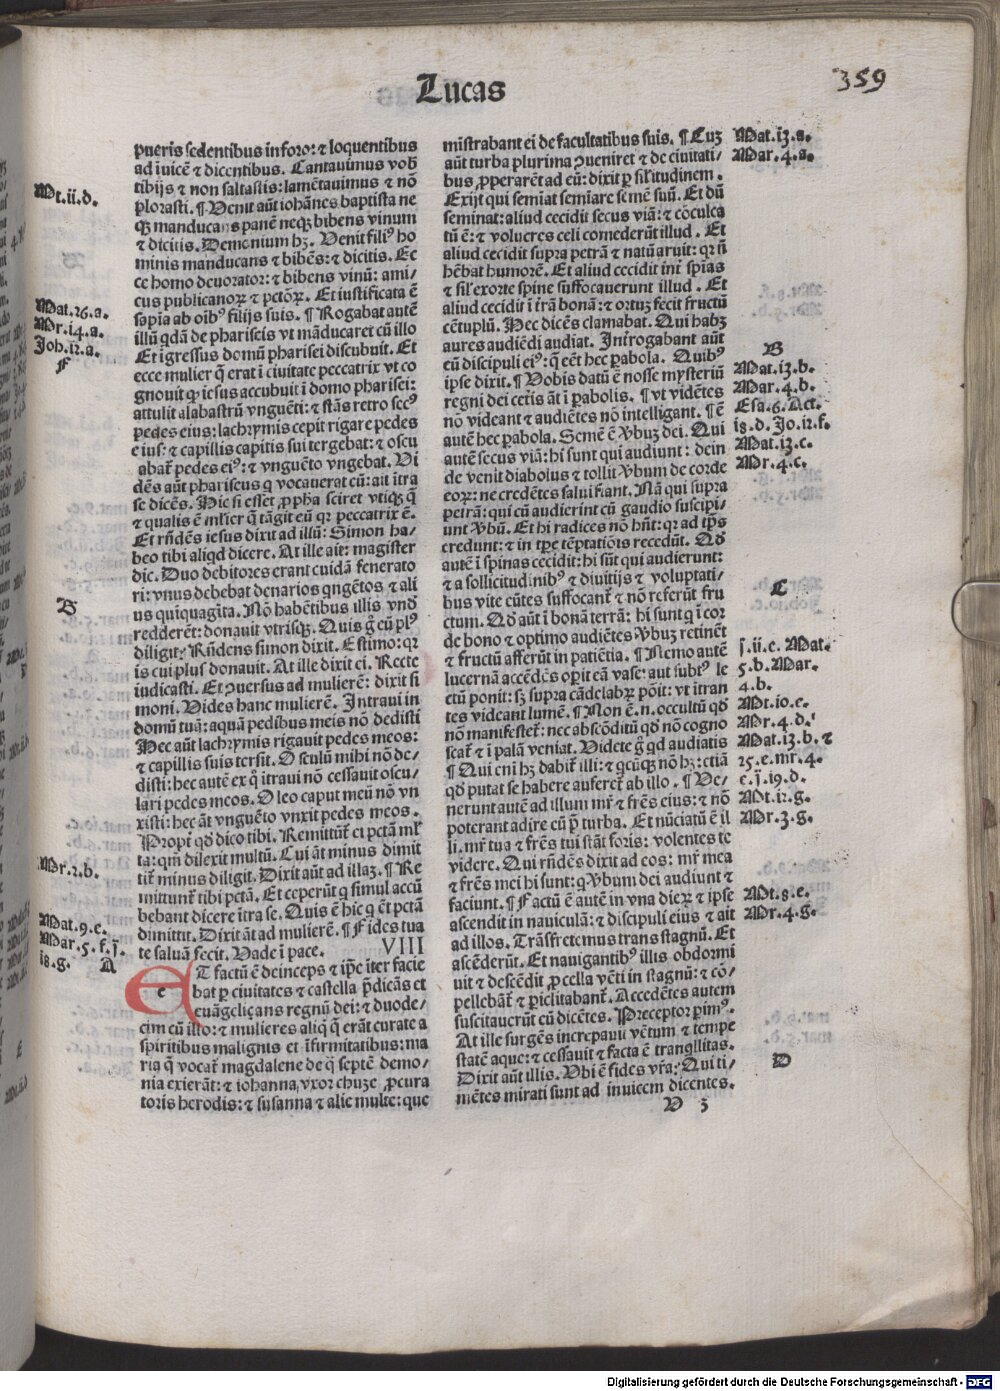 Lucas
359
pueris sedentibus in foro: ⁊ loquentibus
ad iuicē ⁊ dicentibus. Cantauimus vob̄
tibijs ⁊ non saltastis: lamētauimus ⁊ nō
plorastis. ¶ Uenit aūt iohānes baptista ne
qꝫ manducans panē neqꝫ bibens vinum
⁊ dicitis. Demonium hꝫ. Uenit filiꝰ ho
minis manducans ⁊ bibēs: ⁊ dicitis. Ec
ce homo deuorator: ⁊ bibens vinū: ami/
cus publicanoꝝ ⁊ pctōꝝ. Et iustificata ē
sapīa ab oībꝰ filijs suis. ¶ Rogabat autē
illū qdā de phariseis vt māducaret cū illo
Et īgressus domū pharisei discubuit. Et
ecce mulier q̄ erat ī ciuitate peccatrix vt co
gnouit ꝙ iesus accubuit ī domo pharisei:
attulit alabastrū vnguēti: ⁊ stās retro secꝰ
pedes eius: lachrymis cepit rigare pedes
eius: ⁊ capillis capitis sui tergebat: ⁊ oscu
abat̄ pedes eiꝰ: ⁊ vnguēto vngebat. Ui
dēs aūt phariseus q vocauerat eū: ait ītra
se dicēs. Hic si esset ꝓpha sciret vtiqꝫ q̄
⁊ qualis ē mlier q̄ tāgit eū qꝛ peccatrix ē.
Et rn̄dēs iesus dixit ad illū: Simon ha/
beo tibi aliqd dicere. At ille ait: magister
dic. Duo debitores erant cuidā fenerato
ri: vnus debebat denarios qngētos ⁊ ali
us quīquagīta. Nō habētibus illis vnd̄
redderēt: donauit vtrisqꝫ. Quis g̊ eū plꝰ
diligit: Rn̄dens simon dixit. Estimo: qꝛ
is cui plus donauit. At ille dixit ei. Recte
iudicasti. Et ꝯuersus ad mulierē: dixit si
moni. Uides hanc mulierē. Intraui in
domū tuā: aquā pedibus meis nō dedisti
Hec aūt lachrymis rigauit pedes meos:
⁊ capillis suis tersit. Osculū mihi nō de/
disti: hec autē ex q̊ itraui nō cessauit oscu/
lari pedes meos. Oleo caput meū nō vn
xisti: hec āt vnguēto vnxit pedes meos.
Propt̄ qd̄ dico tibi. Remittūt̄ ei pctā ml̄
ta: qm̄ dilexit multū. Cui āt minus dimit
tit̄ minus diligit. Dixit aūt ad illaꝫ. ¶ Re
mittunt̄ tibi pctā. Et ceperūt q simul accū
bebant dicere ītra se. Quis ē hic q ēt pctā
dimittit. Dixit āt ad mulierē. ¶ Fides tua
te saluā fecit. Uade ī pace. VIII
ET factū ē deinceps ⁊ ip̄e iter facie
bat ꝑ ciuitates ⁊ castella p̄dicās et
euāgelicans regnū dei: ⁊ duode/
cim cū illo: ⁊ mulieres aliq̄ q̄ erāt curate a
spiritibus malignis et īfirmitatibus: ma
ria q̄ vocat̄ magdalene de q̄ septē demo/
nia exierāt: ⁊ iohanna vxor chuze ꝓcura
toris herodis: ⁊ susanna ⁊ alie multe: que
mīstrabant ei de facultatibus suis. ¶ Cuꝫ
aūt turba plurima ꝯueniret ⁊ de ciuitati/
bus ꝓperarēt ad eū: dixit ꝑ sil'itudinem.
Exijt qui semiat semīare semē suū. Et dū
seminat: aliud cecidit secus viā: ⁊ cōculca
tū ē: ⁊ volucres celi comederūt illud. Et
aliud cecidit supra petrā ⁊ natū aruit: qꝛ n̄
hēbat humorē. Et aliud cecidit int̄ spias
⁊ sil' exorte spine suffocauerunt illud. Et
aliud cecidit ī t̄rā bonā: ⁊ ortuꝫ fecit fructū
cētuplū. Hec dicēs clamabat. Qui habꝫ
aures audiēdi audiat. Intrrogabant aūt
eū discipuli eiꝰ: q̄ eēt hec ꝑabola. Quibꝰ
ipse dixit. ¶ Uobis datū ē nosse mysteriū
regni dei cetis āt ī ꝑabolis. ¶ vt vidētes
nō videant ⁊ audiētes nō intelligant. ¶ Ē
autē hec ꝑabola. Semē ē ꝟbuꝫ dei. Qui
autē secus viā: hi sunt qui audiunt: dein
de venit diabolus ⁊ tollit ꝟbum de corde
eoꝝ: ne credētes salui fiant. Nā qui supra
petrā: qui cū audierint cū gaudio suscipi/
unt ꝟbū. Et hi radices nō hn̄t: qꝛ ad tp̄s
credunt: ⁊ in tp̄e tēptatiōis recedūt. Qd̄
autē ī spinas cecidit: hi sūt qui audierunt:
⁊ a sollicitudinibꝰ ⁊ diuitijs ⁊ voluptati/
bus vite eūtes suffocant̄ ⁊ nō referūt fru
ctum. Qd̄ aūt ī bonā terrā: hi sunt q ī cor
de bono ⁊ optimo audiētes ꝟbuꝫ retinēt
⁊ fructū afferūt in patiētia. ¶ Nemo autē
lucernā accēdēs oꝑit eā vase: aut subtꝰ le
ctū ponit: sꝫ supra cādelabꝝ pōit: vt itran
tes videant lumē. ¶ Non ē .n. occultū qd̄
nō manifestet̄: nec abscōditū qd̄ nō cogno
scat̄ ⁊ ī palā veniat. Uidete g̊ qd audiatis
¶ Qui eni hꝫ dabit̄ illi: ⁊ qcūqꝫ nō hꝫ: etiā
qd̄ putat se habere auferet̄ ab illo. ¶ Ue/
nerunt autē ad illum mr̄ ⁊ frēs eius: ⁊ nō
poterant adire eū p̄ turba. Et nūciatū ē il
li. mr̄ tua ⁊ frēs tui stāt foris: volentes te
videre. Qui rn̄dēs dixit ad eos: mr̄ mea
⁊ frēs mei hi sunt: q ꝟbum dei audiunt ⁊
faciunt. ¶ Factū ē autē in vna dieꝝ ⁊ ipse
ascendit in nauiculā: ⁊ discipuli eius ⁊ ait
ad illos. Trāsfretemus trans stagnū. Et
ascēderūt. Et nauigantibꝰ illis obdormi
uit ⁊ descēdit ꝓcella vēti in stagnū: ⁊ cō/
pellebāt̄ ⁊ ꝑiclitabant̄. Accedētes autem
suscitauerūt eū dicētes. Preceptor ꝑimꝰ.
At ille surgēs increpauit vētum ⁊ tempe
statē aque: ⁊ cessauit ⁊ facta ē tranqllitas.
Dixit aūt illis. Ubi ē fides vr̄a: Qui ti/
mētes mirati sunt ad inuicem dicentes.
V 3
Mt.ii.d.
Mat.26.a.
Mr.i4.a.
Joh.i2.a.
F
B
Mr.2.b.
Mat.9.e.
Mar.5.f.j.
i8.g. A
Mat.i3.a.
Mar.4.a.
B
Mat.i3.b.
Mar.4.b.
Esa.6. Act.
i8.d. Jo.i2.f.
Mat.i3.c.
Mr.4.c.
C
j.ii.e. Mat.
5.b. Mar.
4.b.
Mt.io.e.
Mr.4.d.
Mat.i3.b. ⁊
25.e. mr.4.
e.j.i9.d.
Mt.i2.g.
Mr.3.g.
Mt.8.e.
Mr.4.g.
D
Digitalisierung gefördert durch die Deutsche Forschungsgemeinschaft - DFG